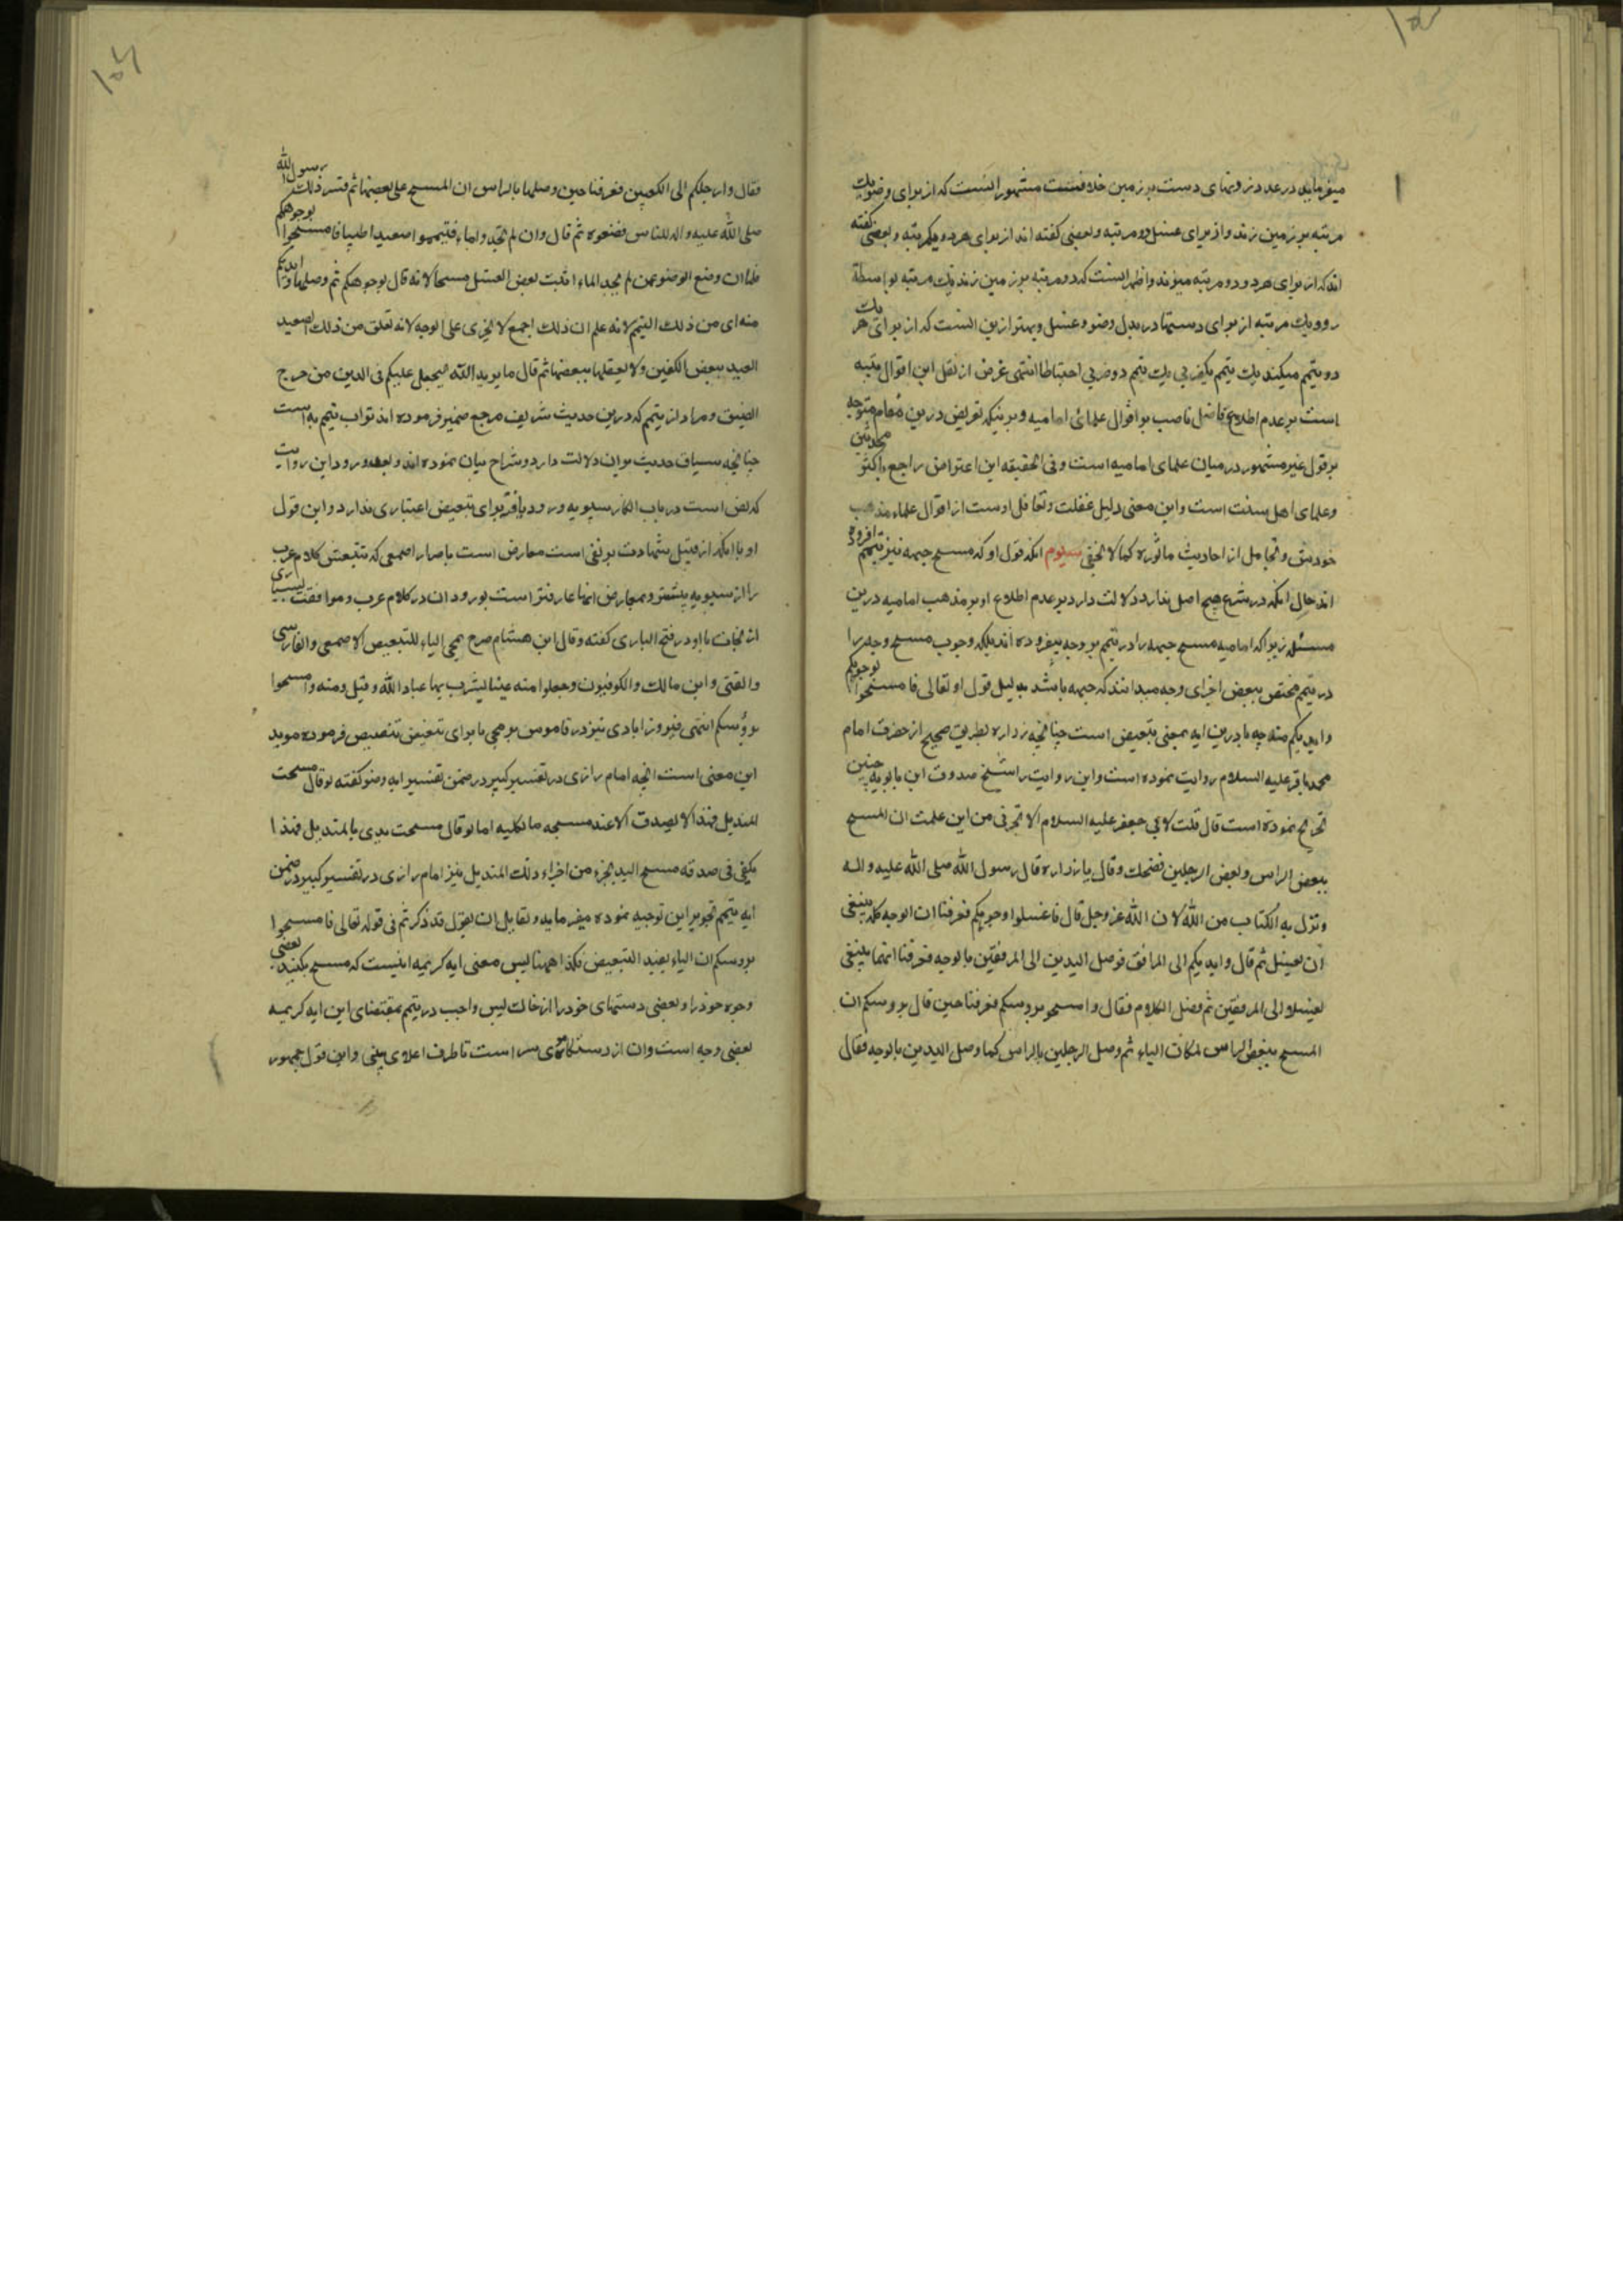 میفرماید در عدد زدنهای دست بر زمین خلافست مشهور انست که از برای وضو یک
مرتبه بر زمین زند و از برای غسل دو مرتبه و بعضی کفته اند از برای هر دو یکمرتبه و بعضی کفته
اند که از برای هر دو دو مرتبه میزند و اظهر انست که دو مرتبه بر زمین زند یک مرتبه بواسطة
رو و یک مرتبه از برای دستها در بدل وضو و غسل و بهتر ازین انست که از برای هر یک
دو تیمم میکند یک تیمم بکضربی یک تیمم دو ضربی احتیاطا انتهی غرض از نقل این اقوال تنبیه
است بر عدم اطلاع فاضل ناصب بر اقوال علمای امامیه و بر نیکه تعریض درین مقام متوجه
بر قول غیر مشهور در میان علمای امامیه است و فی الحقیقه این اعتراض راجع باکثر محدثین
و علمای اهل سنت است و این معنی دلیل غفلت و تغافل اوست از اقوال علماء مذهب
خودش و تجاهل از احادیث ماثوره کما لا یخفی سیوم انکه قول او که مسح جبهه نیز تیمم افزوده
اند حال انکه در شرع هیچ اصل ندارد دلالت دارد بر عدم اطلاع او بر مذهب امامیه درین
مسئله زیرا که امامیه مسح جبهه را در تیمم بر وجه نیفزوده اند بلکه وجوب مسح وجه را
در تیمم مختص ببعض اجزای وجه میدانند که جبهه باشد بدلیل قول او تعالی فامسحوا بوجوهکم
وایدیکم منه چه با درین ایه بمعنی تبعیض است چنانچه زراره بطریق صحیح از حضرت امام
محمد باقر علیه السلام روایت نموده است و این روایت را شیخ صدوق ابن بابویه چنین
تخریج نموده است قال قلت لابی جعفر علیه السلام الا تخبرنی من این علمت ان المسح
ببعض الراس و بعض الرجلین فضحک وقال یا زراره قال رسول الله صلی الله علیه واله
ونزل به الکتاب من الله لان الله عز وجل قال فاغسلوا وجوهکم فعرفنا ان الوجه کله ینبغی
ان یغسل ثم قال وایدیکم الی المرافق فوصل الیدین الی المرفقین بالوجه فعرفنا انهما ینبغی
لغیسلا الی المرفقین ثم فصل الکلام فقال وامسحو بروسکم فعرفنا حین قال بروسکم ان
المسح ببعض الراس لمکان الباء ثم وصل الرجلین بالراس کما وصل الیدین بالوجه فقال
فقال وارجلکم الی الکعبین فعرفنا حین وصلها بالراس ان المسح علی بعضها ثم فسر ذلک رسول الله
صلی الله علیه واله للناس فضیعوه ثم قال وان لم تجدوا ماء فتیمموا صعیدا طیبا فامسحوا بوجوهکم
فلما ان وضع الوضو عمن لم یجد الماء اثبت بعض الغسل مسحا لانه قال بوجوهکم ثم وصلها وایدیکم
منه ای من ذلک التیمم لانه علم ان ذلک اجمع لا یجری علی الوجه لانه تعلق من ذلک الصعید
العید ببعض الکفین ولا یعلقها ببعضها ثم قال ما یرید الله لیجعل علیکم فی الدین من حرج
الضیق و مراد از تیمم که درین حدیث شریف مرجع ضمیر فرموده اند تراب تیمم به است
چنانچه سیاق حدیث بران دلالت دارد و شراح بیان نموده اند و بعد ورود این روایت
که نص است در باب انکار سیبویه ورود باء برای تبعیض اعتباری ندارد و این قول
او با انکه از قبیل شهادت بر نفی است معارض است باصرار اصمعی که تتبعش کلام عرب
را از سیبویه بیشتر و بمعارض انها عارفتر است بورود ان در کلام عرب و موافقت بسیاری
از نحات با او در فتح الباری کفته وقال ابن هشام صرح بمجی الباء للتبعیض الاصمعی والفارسی
والقتبی وابن مالک والکوفیون وجعلوا منه عینا یشرب بها عباد الله وقیل ومنه وامسحوا
بروسکم انتهی فیروزابادی نیز در قاموس بر مجی با برای تبعیض تنصیص فرموده موید
این معنی است انچه امام رازی در تفسیر کبیر در ضمن تفسیر ایه وضو کفته لو قال مسحت
المندیل فهذا لا یصدق الا عند مسحه بالکلیه اما لو قال مسحت یدی بالمندیل فهذا
یکفی فی صدقه مسح الید بجزء من اجزاء ذلک المندیل نیز امام رازی در تفسیر کبیر در ضمن
ایه تیمم تجویز این توجیه نموده میفرماید ولقایل ان یقول قد ذکرتم فی قوله تعالی فامسحوا
بروسکم ان الباء یفید التبعیض فکذا ههنا پس معنی ایه کریمه اینست که مسح بکنید بعضی
وجوه خود را و بعضی دستهای خود را از خاک پس واجب در تیمم بمقتضای این ایه کریمه
بعضی وجه است وان از رستنکاه موی سر است تا طرف اعلای بینی و این قول جمهور